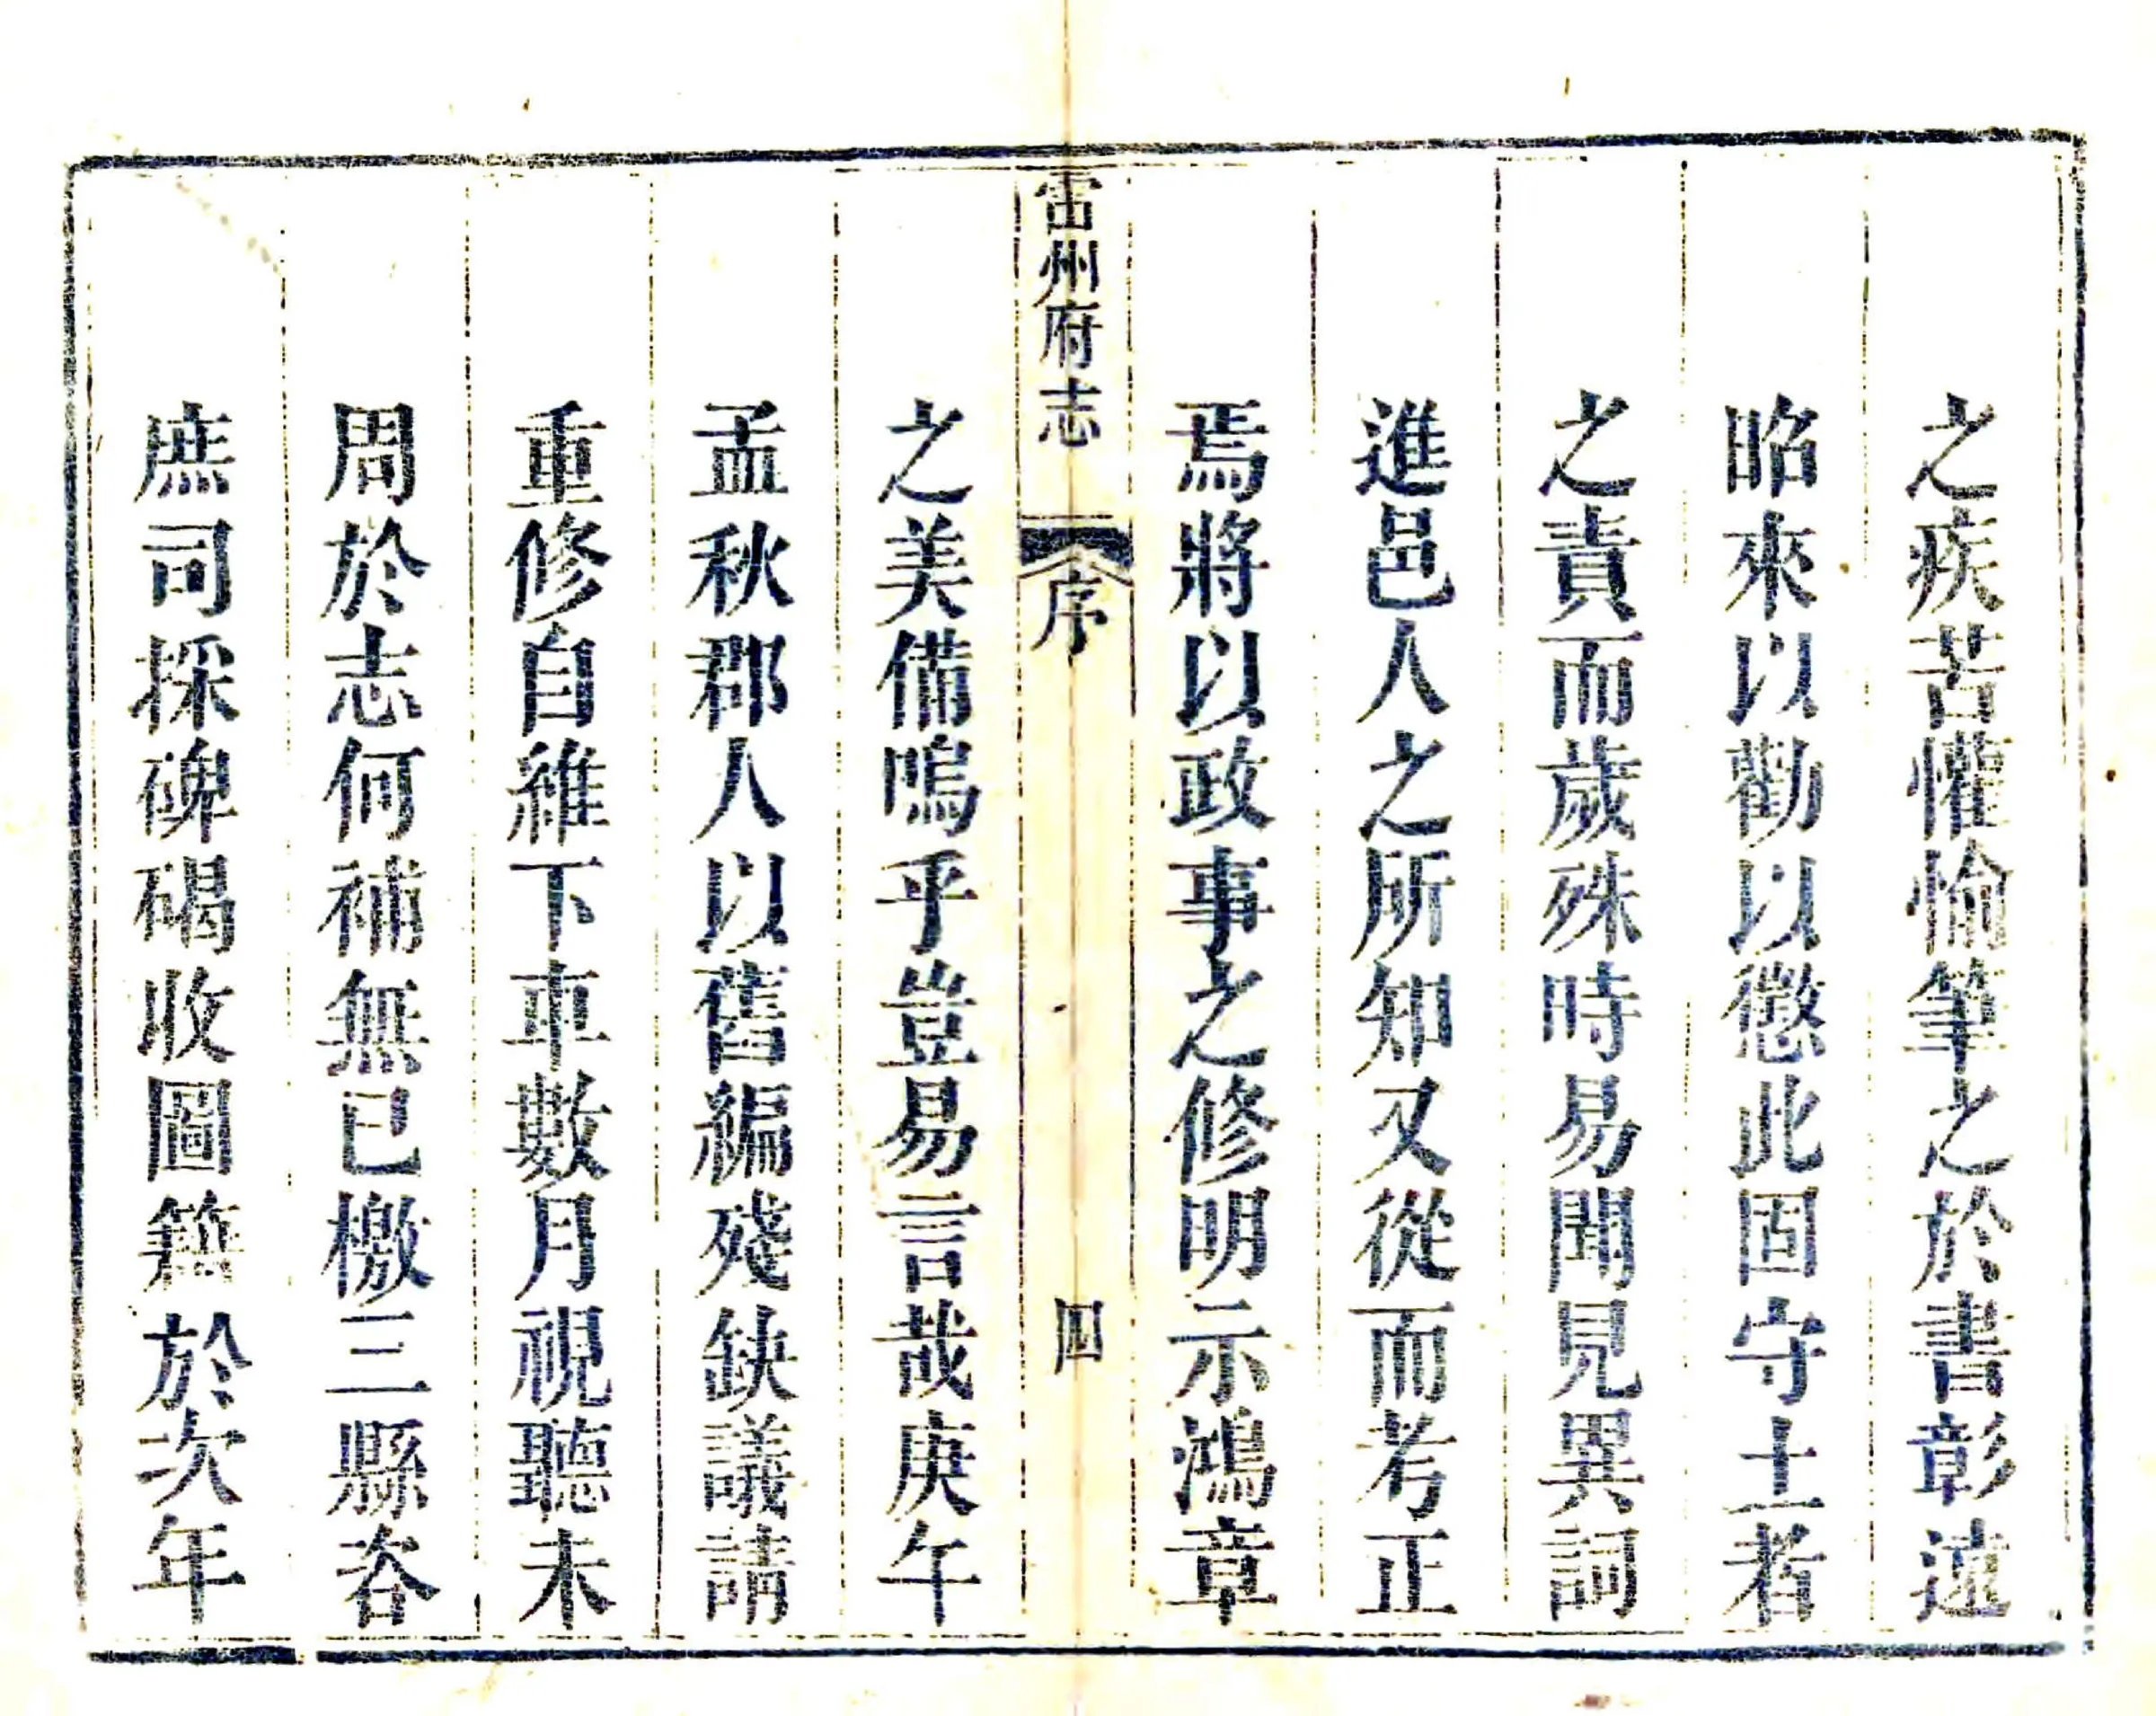 之疾苦懽愉筆之於書彰遠
昭來以勸以懲此固守土者
之責而歲殊時易聞見異詞
進邑人之所知又從而考正
焉將以政事之修明示鴻章
雷州府志
序
四
之美備嗚乎豈易言哉庚午
孟秋郡人以舊編殘缺議請
重修自維下車數月視聽未
周於志何補無已檄三縣咨
庶司採碑碣收圖籍於次年